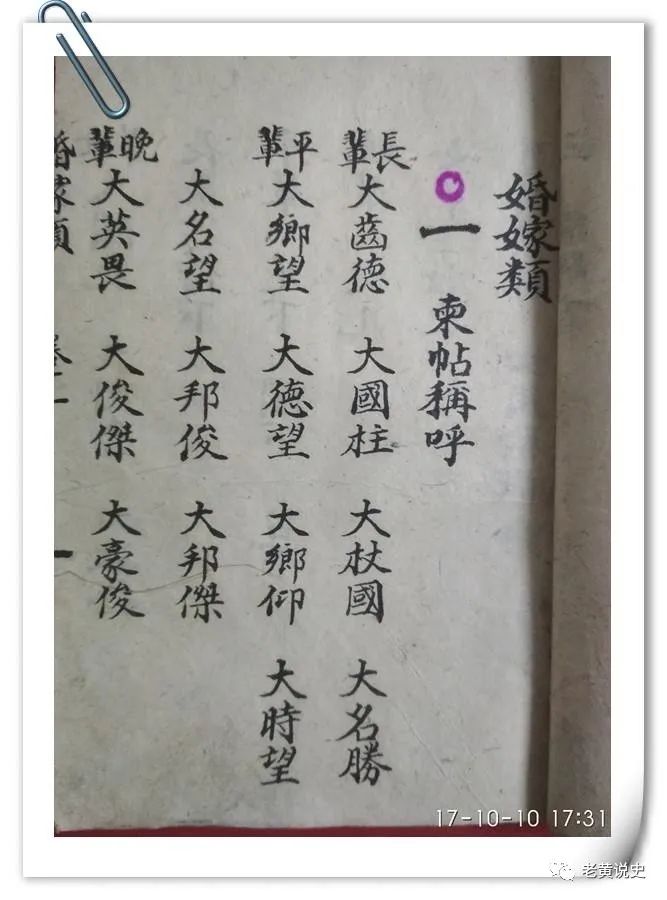 婚嫁類
一 柬帖稱呼
長輩 大齒德 大國柱 大杖國 大名勝
平輩 大鄉望 大德望 大鄉仰 大時望
大名望 大邦俊 大邦傑
晚輩 大英畏 大俊傑 大豪俊
婚嫁類 卷二 一
17-10-10 17:31
老黄说史